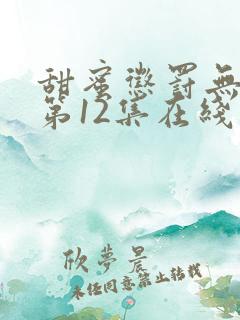 甜蜜懲罰無
第12集在綫
欣夢晨
未經同意禁止轉載